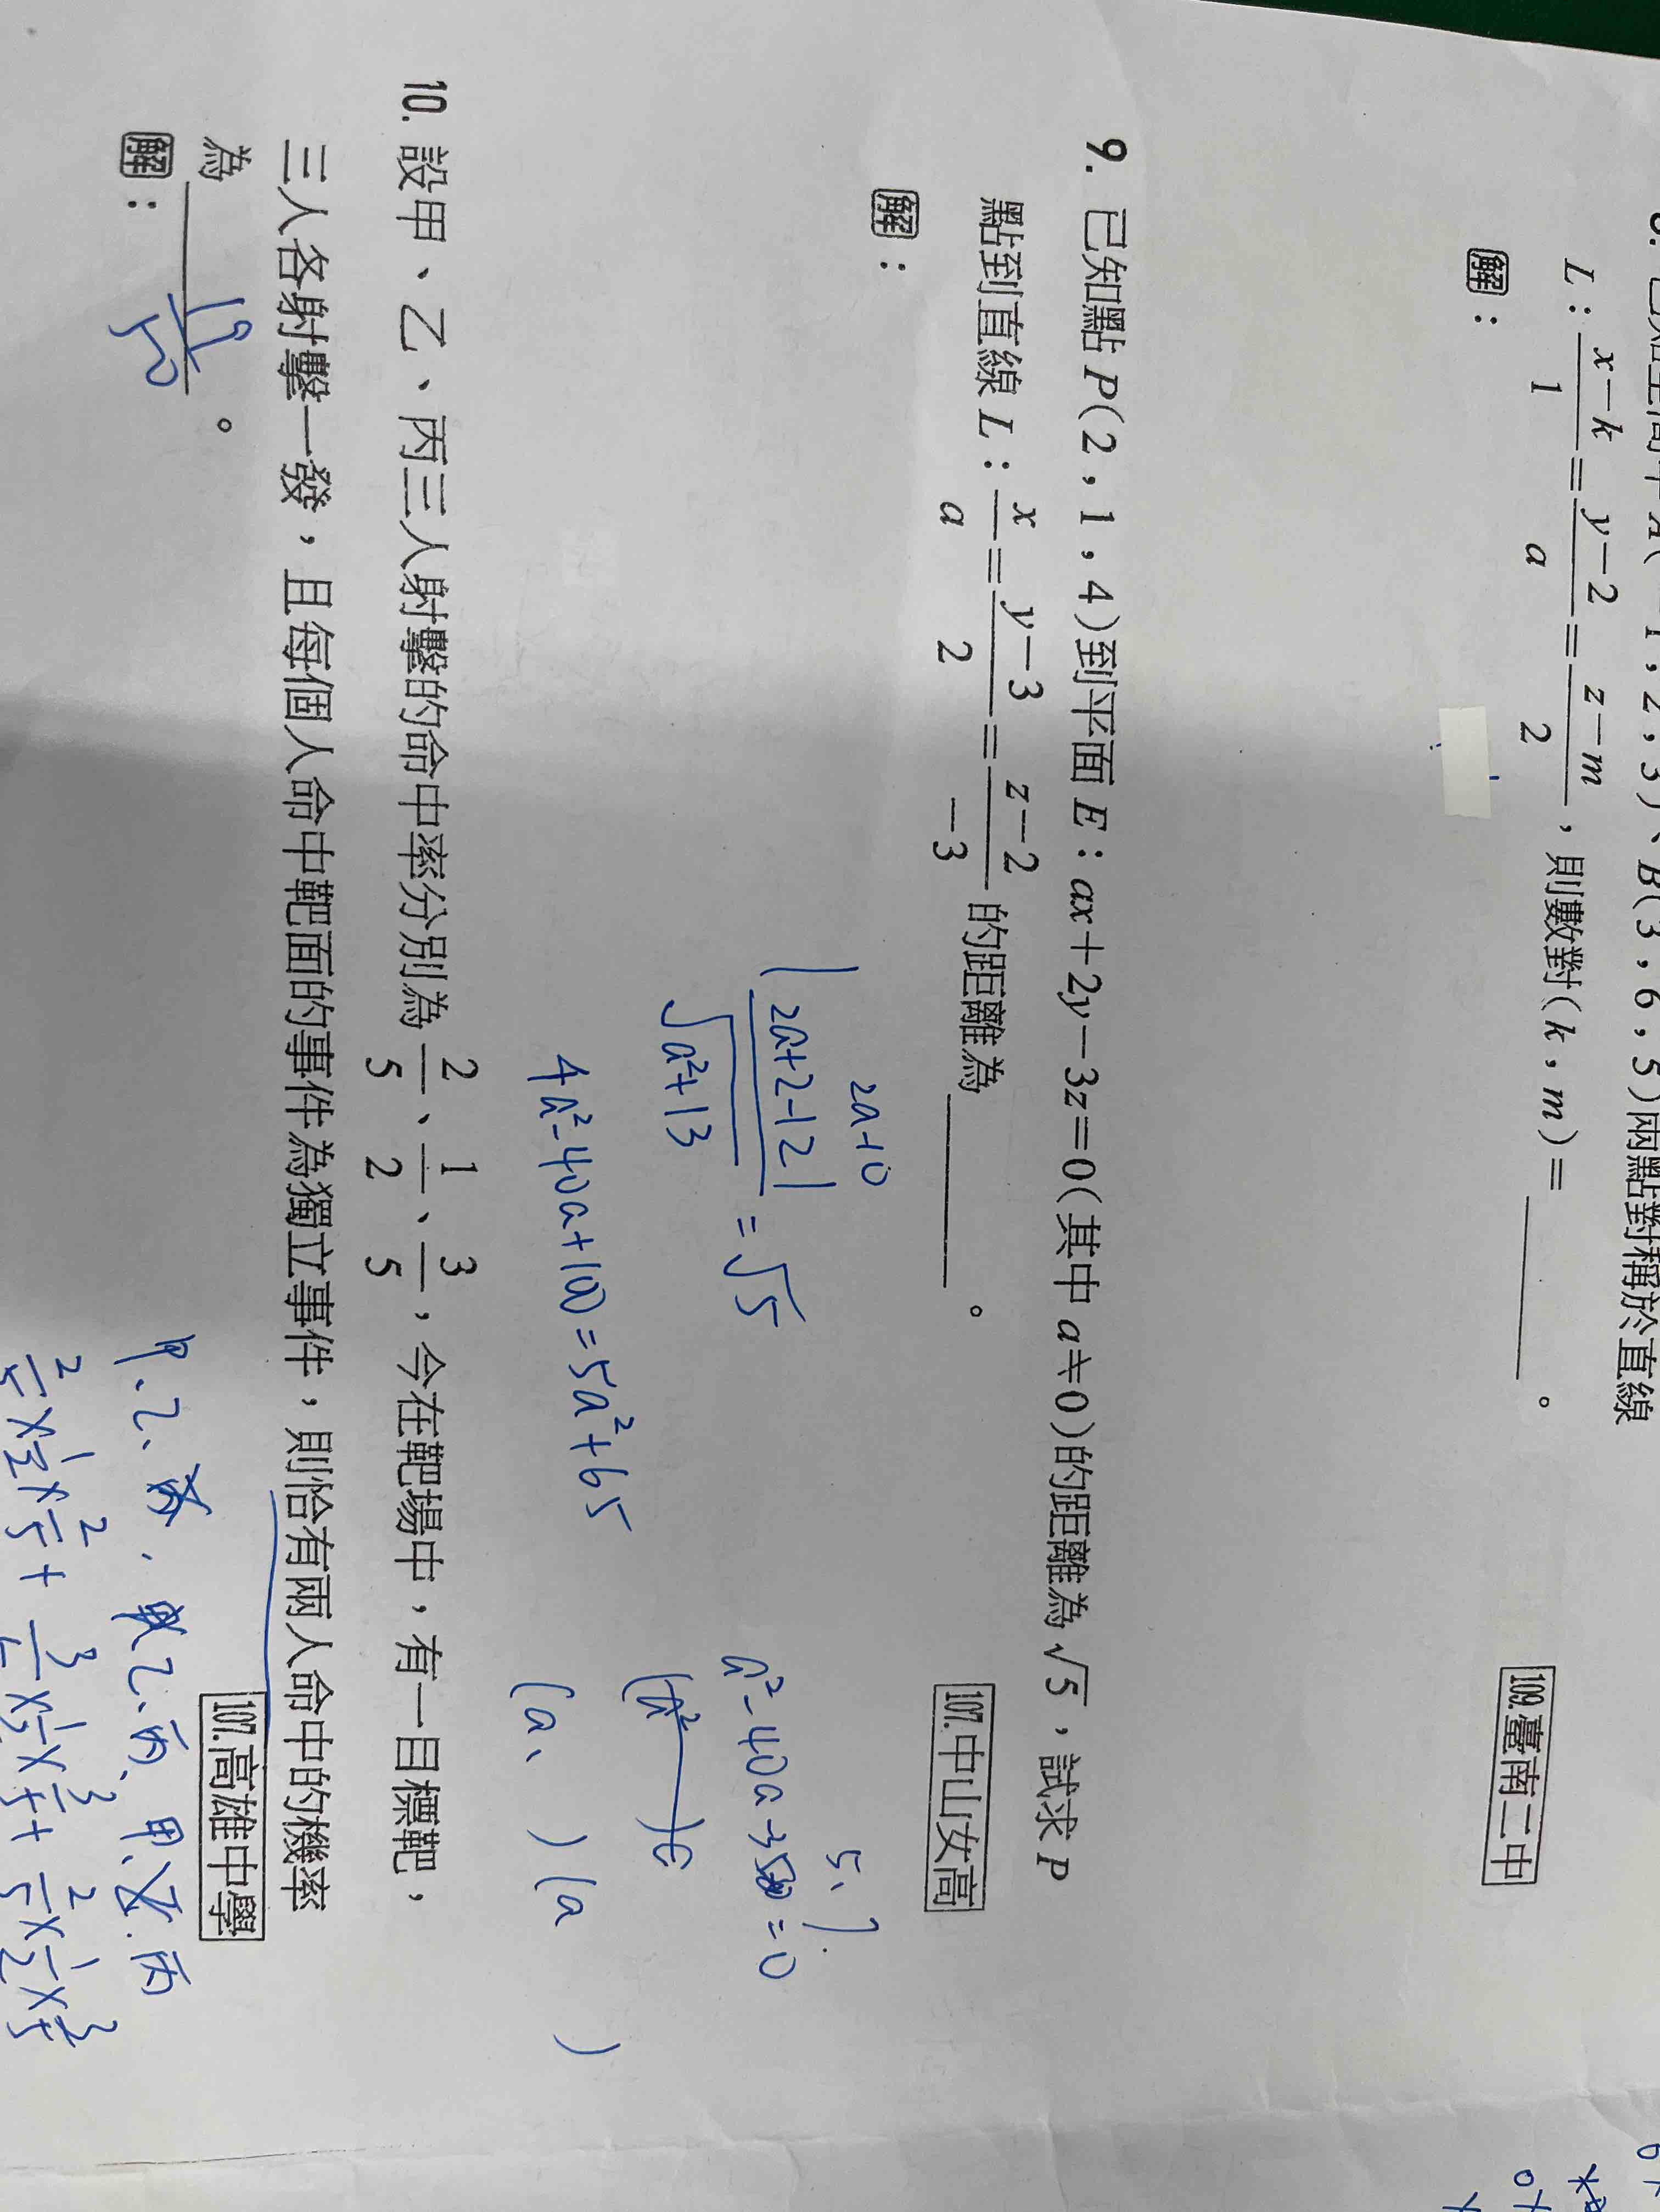 L：x−k/1=y−2/a=z−m/2，則數對(k，m)=______。
109.臺南二中
解：
9. 已知點P(2，1，4)到平面E：ax+2y−3z=0(其中a≠0)的距離為√5，試求P
點到直線L：x/a=y−3/2=z−2/−3的距離為______。
107.中山女高
解：
2a-10
|2a+2-12|/√a²+13 = √5
4a²-40a+100=5a²+65
5、7
=0
(a、 )(a )
10. 設甲、乙、丙三人射擊的命中率分別為2/5、1/2、3/5，今在靶場中，有一目標靶，
三人各射擊一發，且每個人命中靶面的事件為獨立事件，則恰有兩人命中的機率
為______。
19/50
107.高雄中學
解：
甲、乙、丙、甲乙、丙、甲、乙、丙
2/5×1/2×2/5+3/5×1/2×3/5+2/5×1/2×3/5